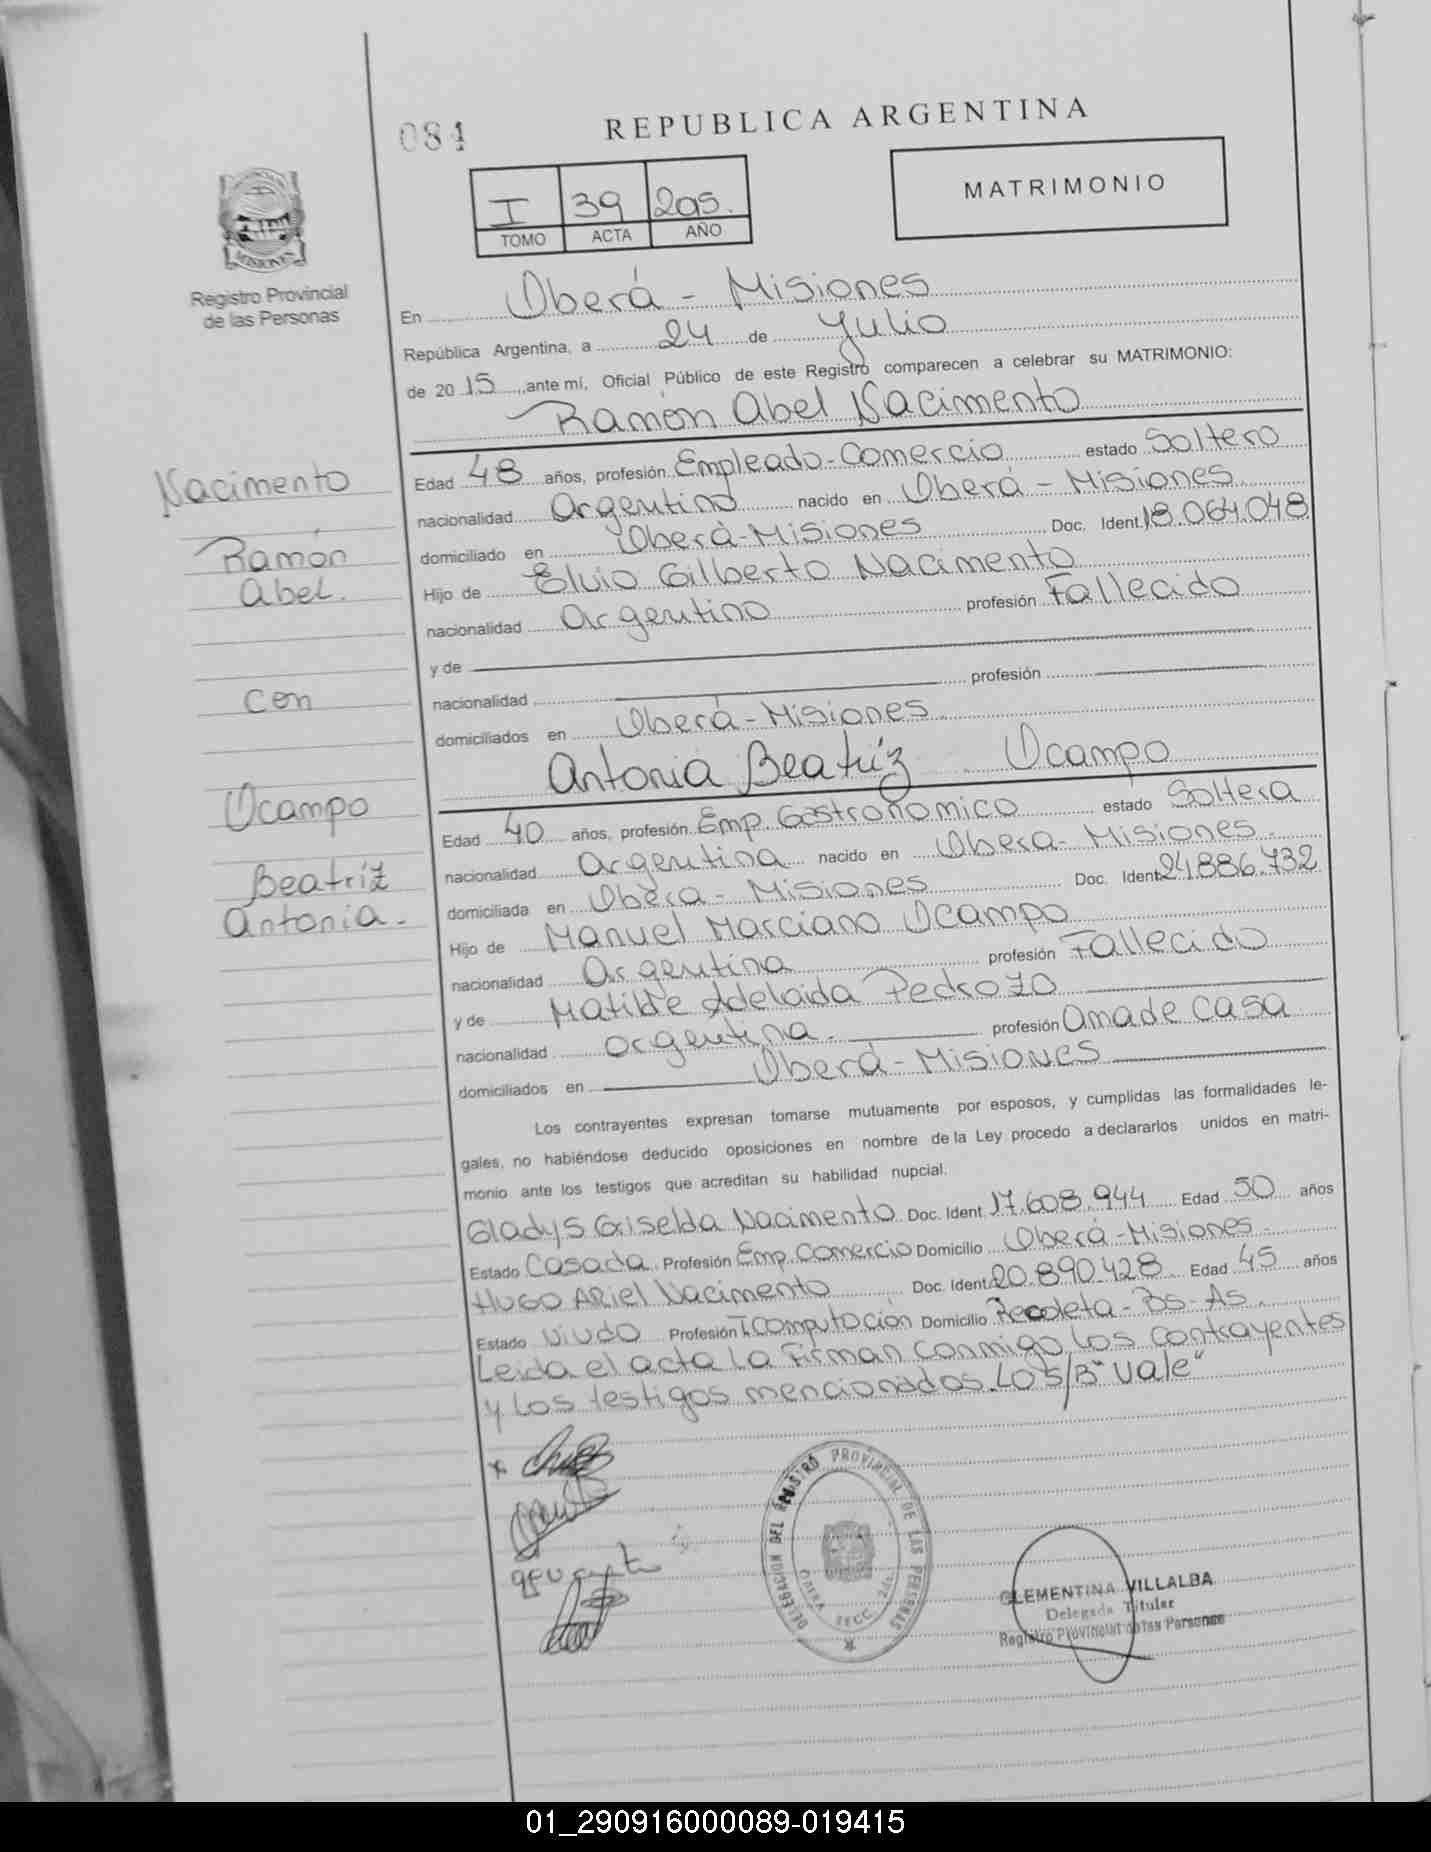 084
REPUBLICA ARGENTINA
I 39 2015.
TOMO ACTA AÑO
MATRIMONIO
MISIONES
Registro Provincial
de las Personas
En Oberá - Misiones
República Argentina, a 24 de Julio
de 2015, ante mí, Oficial Público de este Registro comparecen a celebrar su MATRIMONIO:
Ramón Abel Nacimento
Edad 48 años, profesión Empleado-Comercio estado Soltero
nacionalidad Argentino nacido en Oberá - Misiones
domiciliado en Oberá-Misiones Doc. Ident. 18.064.048
Hijo de Elvio Gilberto Nacimento
nacionalidad Argentino profesión Fallecido
y de
nacionalidad profesión
domiciliados en Oberá-Misiones
Antonia Beatríz Ocampo
Edad 40 años, profesión Emp. Gastronomico estado Soltera
nacionalidad Argentina nacido en Obera- Misiones.
domiciliada en Obera - Misiones Doc. Ident 24.886.732
Hijo de Manuel Marciano Ocampo
nacionalidad Argentina profesión Fallecido
y de Matilde Adelaida Pedrozo
nacionalidad argentina. profesión Ama de casa
domiciliados en Oberá-Misiones
Los contrayentes expresan tomarse mutuamente por esposos, y cumplidas las formalidades le-
gales, no habiéndose deducido oposiciones en nombre de la Ley procedo a declararlos unidos en matri-
monio ante los testigos que acreditan su habilidad nupcial.
Gladys Griselda Nacimento Doc. Ident. 17.608.944 Edad 50 años
Estado Casada Profesión Emp. Comercio Domicilio Oberá-Misiones.
Hugo Ariel Nacimento Doc. Ident. 20.890.428 Edad 45 años
Estado Viudo Profesión T. Computación Domicilio Recoleta - Bs-As.
Leida el acta la firman conmigo los contrayentes
y los testigos mencionados. Lo S/B "Vale"
Nacimento
Ramón
Abel.
con
Ocampo
Beatríz
Antonia.
DELEGACION DEL REGISTRO PROVINCIAL DE LAS PERSONAS
OBERA SECC. 2da.
CLEMENTINA VILLALBA
Delegada Titular
Registro Provincial de las Personas
01_290916000089-019415